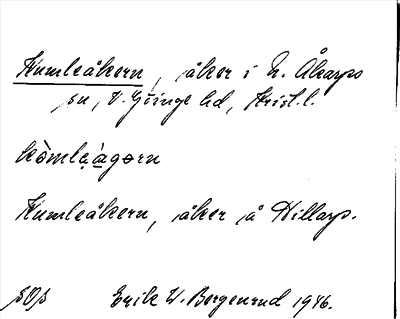 Humleåkern, åker i N. Åkarps
sn, V. Göinge hd, Krist. l.
hòmlə̣àgərn
Humleåkern, åker å Hillarp.
Erik W. Bergenrud 1946.